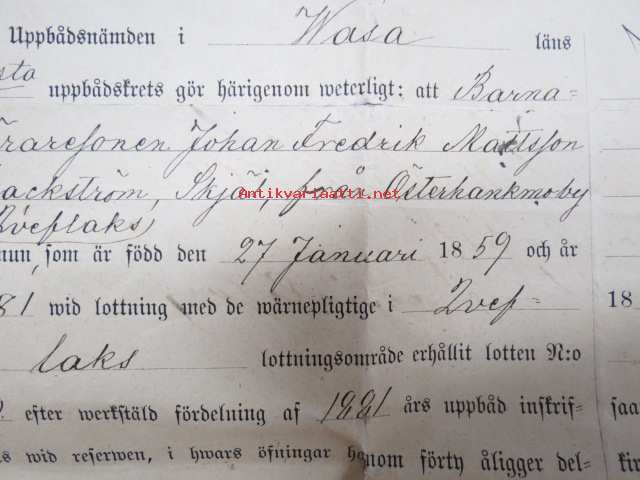 Uppbådsnämden i Wasa läns
sta uppbådskrets gör härigenom weterligt: att Barna-
raresonen Johan Fredrik Mattsson
ackström, Skjäl, från Österhankmoby
Antikvariaatti.net
Qveflaks)
mun, som är född den 27 Januari 1859 och år
81 wid lottning med de wärnepligtige i Qvef- 18
laks lottningsområde erhållit lotten N:o
efter werkstäld fördelning af 1881 års uppbåd inskrif- saa
s wid reserwen, i hwars öfningar honom förty åligger del- kir